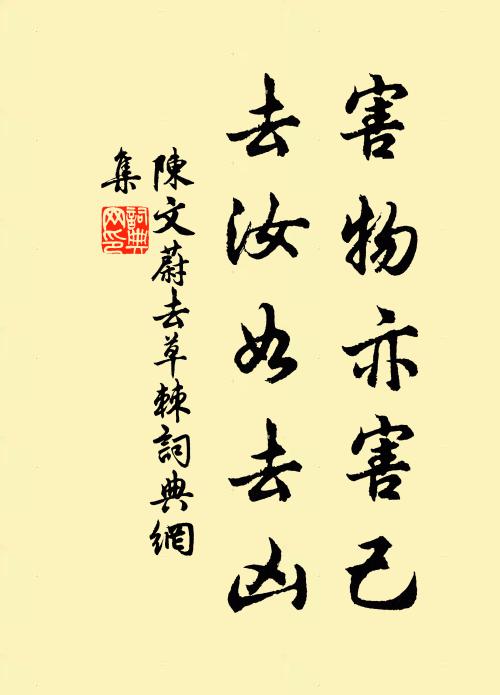 害物亦害己
去汝如去凶
陳文蔚去草棘詞典網
集
詞典
网印